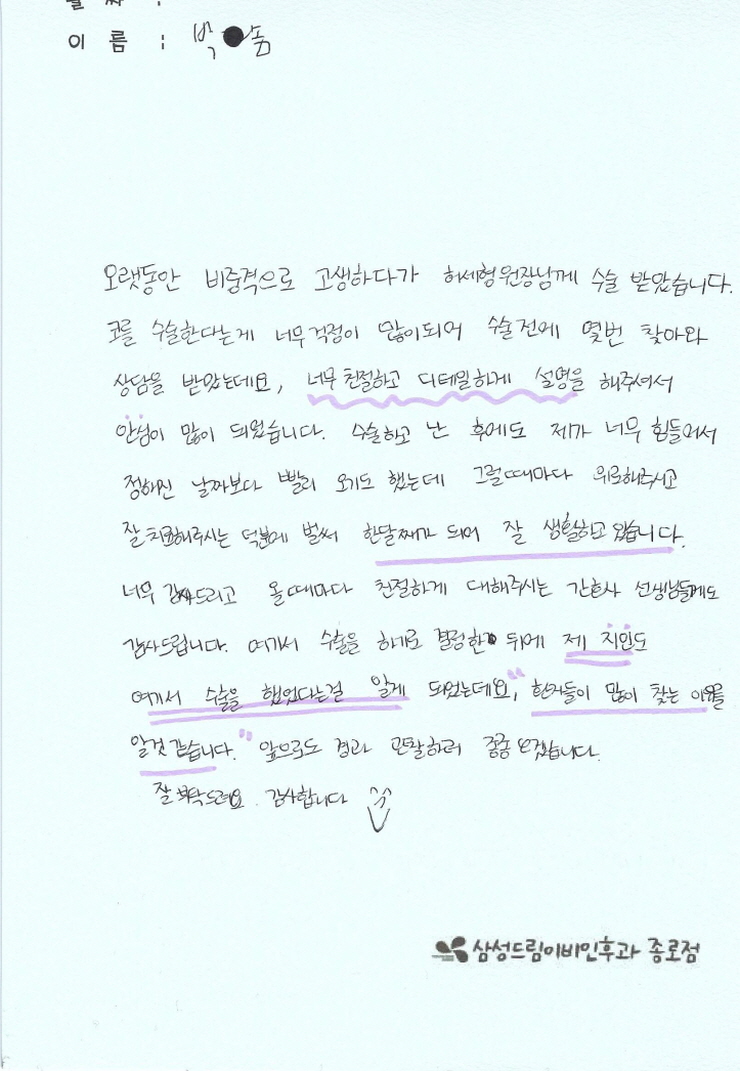 날 짜 :
이 름 : 박●솜
오랫동안 비중격으로 고생하다가 허세형원장님께 수술 받았습니다.
코를 수술한다는게 너무 걱정이 많이되어 수술전에 몇번 찾아와
상담을 받았는데요, 너무 친절하고 디테일하게 설명을 해주셔서
안심이 많이 되었습니다. 수술하고 난 후에도 제가 너무 힘들어서
정해진 날짜보다 빨리 오기도 했는데 그럴때마다 위로해주시고
잘 치료해주시는 덕분에 벌써 한달째가 되어 잘 생활하고 있습니다.
너무 감사드리고 올때마다 친절하게 대해주시는 간호사 선생님들께도
감사드립니다. 여기서 수술을 하기로 결정한 뒤에 제 지인도
여기서 수술을 했었다는걸 알게 되었는데요, "환자들이 많이 찾는 이유를
알것 같습니다." 앞으로도 경과 관찰하러 종종 오겠습니다.
잘 부탁드려요. 감사합니다 ^^
삼성드림이비인후과 종로점